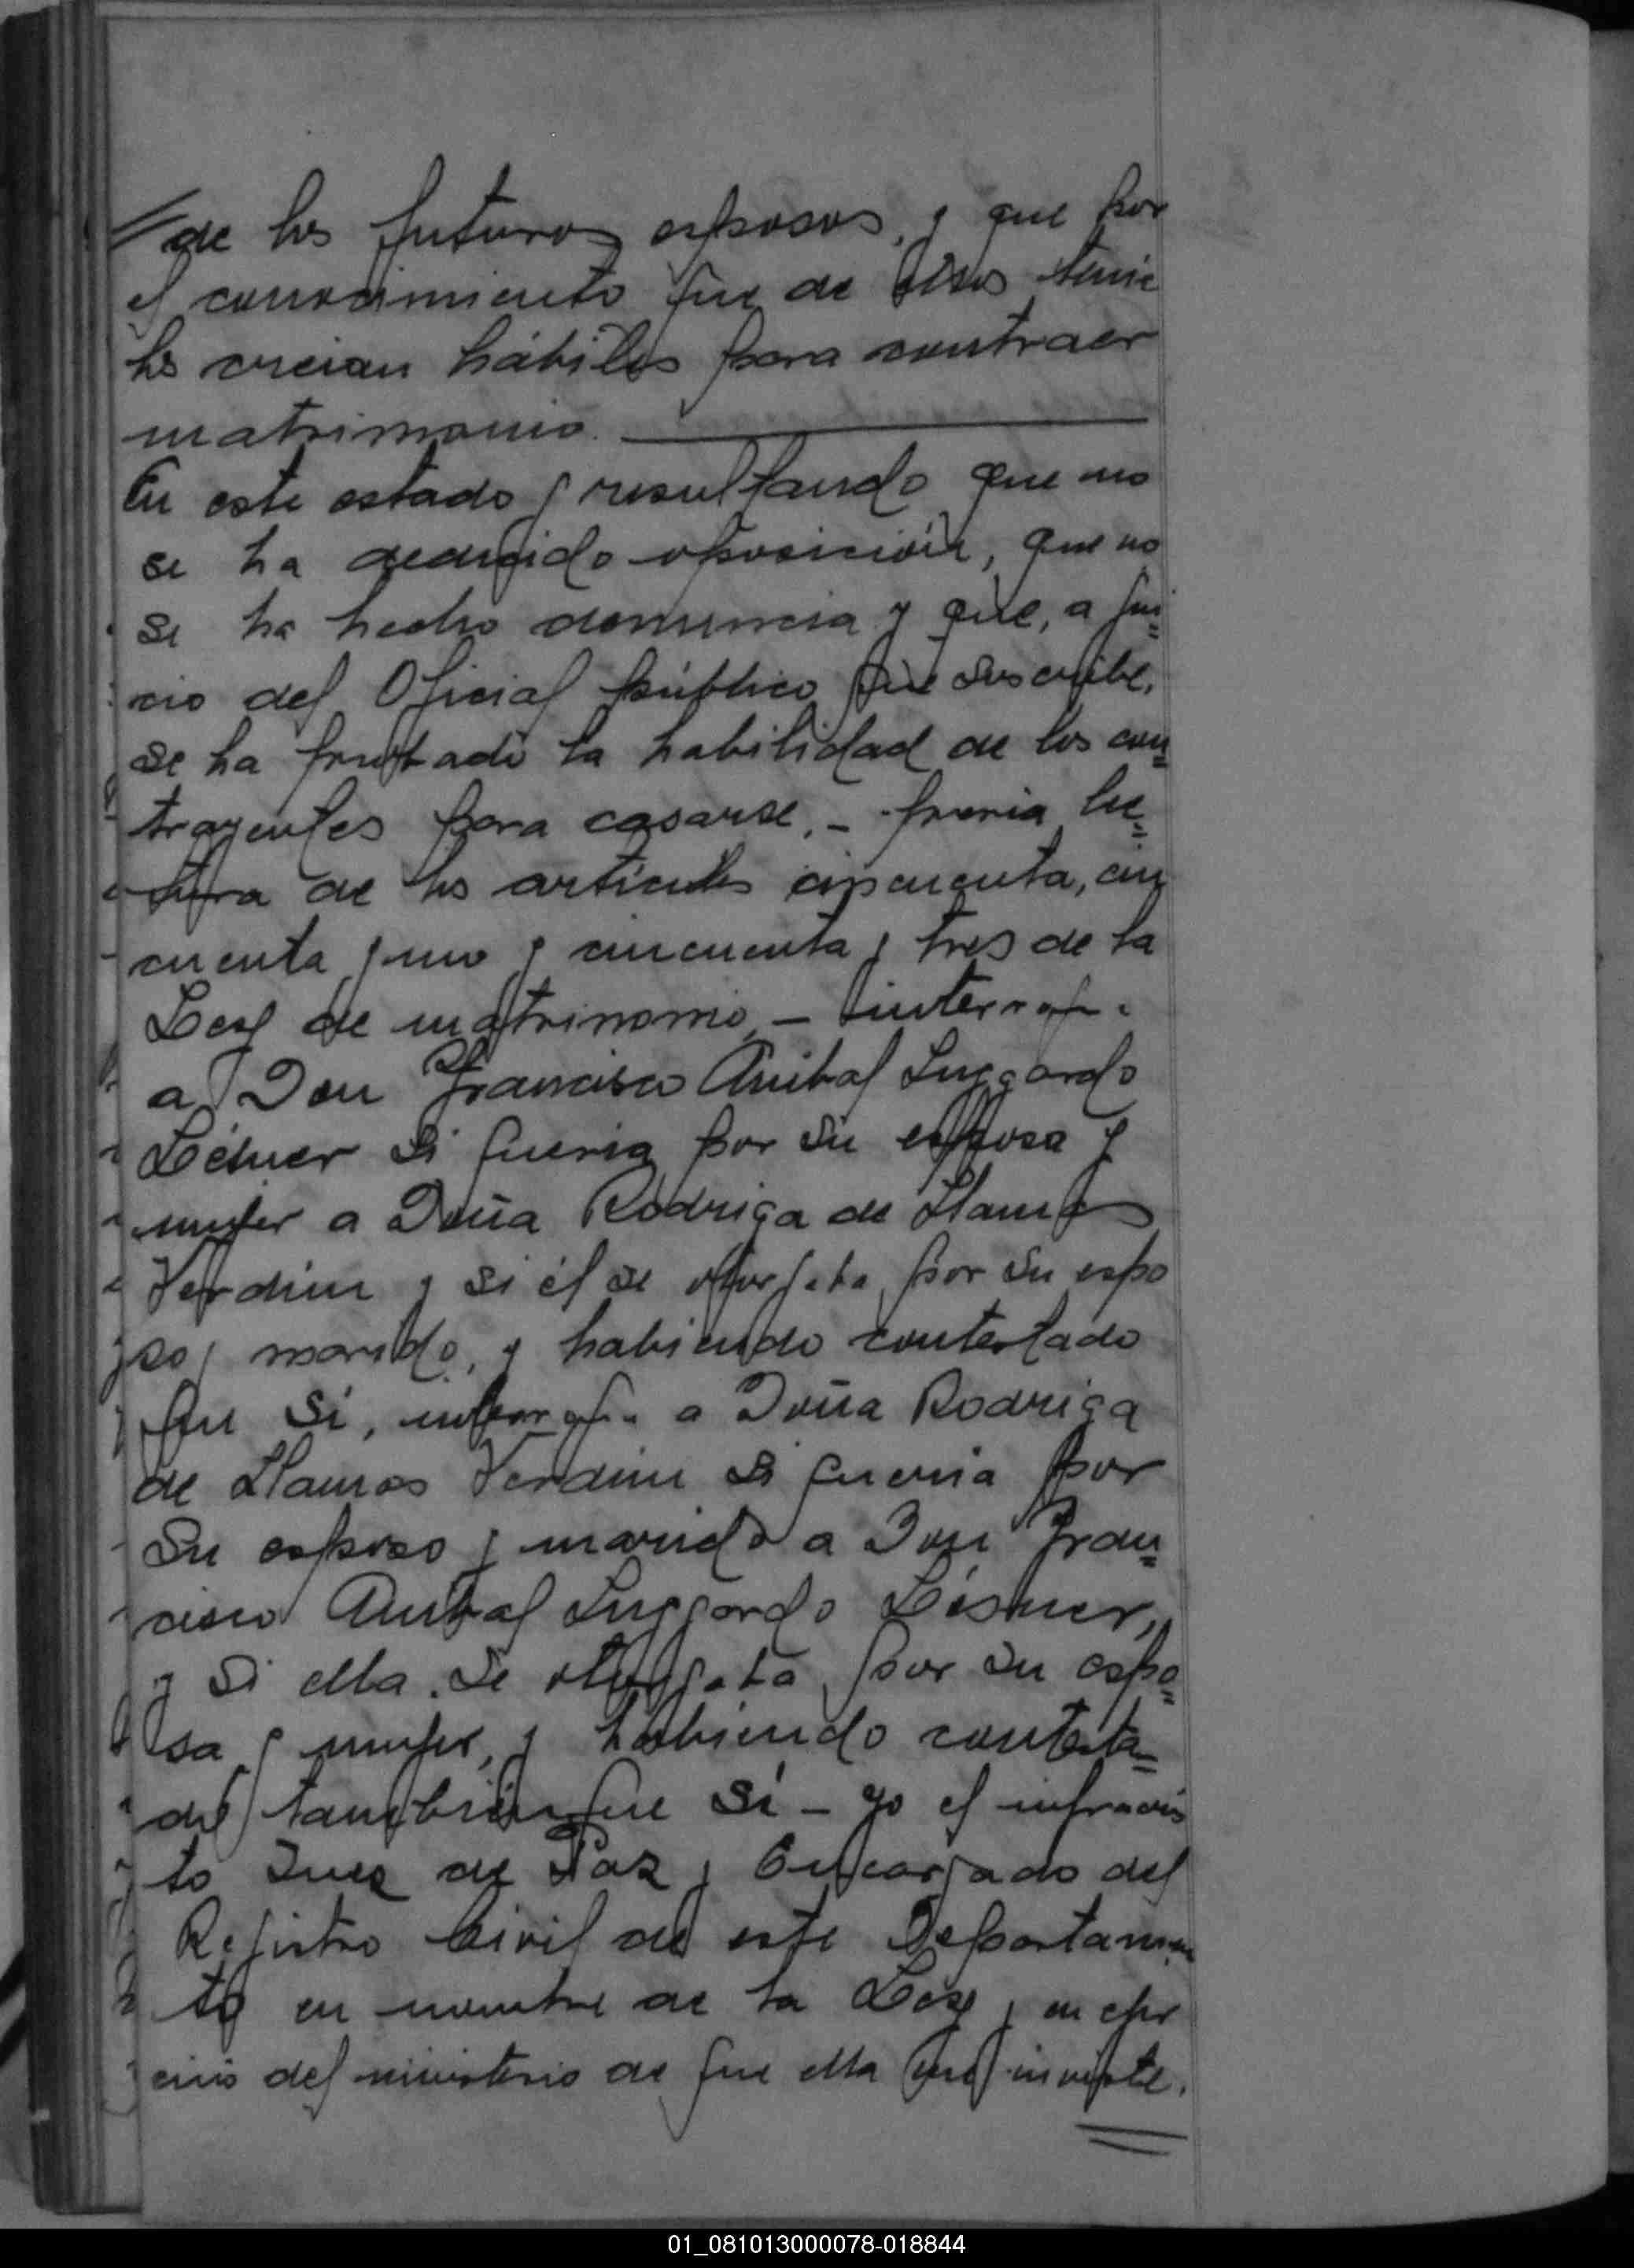 //de los futuros esposos, y que por
el conocimiento que de ellos tenia
los creian hábiles para contraer
matrimonio.
En este estado y resultando que no
se ha deducido oposición, que no
se ha hecho denuncia y que, a jui=
cio del Oficial público que suscribe,
se ha probado la habilidad de los con=
trayentes para casarse, - previa lec=
tura de los articulos cincuenta, cin
cuenta y uno y cincuenta y tres de la
Ley de matrimonio, - interrogué
a Don Francisco Anibal Luggardo
si queria por su esposa y
mujer a Doña Rodriga de Llamos
Verdini y si él se otorgaba por su espo
so y marido, y habiendo contestado
que Sí, interrogué a Doña Rodriga
de Llamos Verdini si queria por
Su esposo y marido a Don Fran=
cisco Anibal Luggardo
y Si ella se otorgaba por su espo=
sa y mujer, y habiendo contesta=
do también que Sí - yo el infrascri
to Juez de Paz y Encargado del
Registro Civil de este Departamen
to en nombre de la Ley y en ejer
cicio del ministerio de que ella me inviste.
01_081013000078-018844